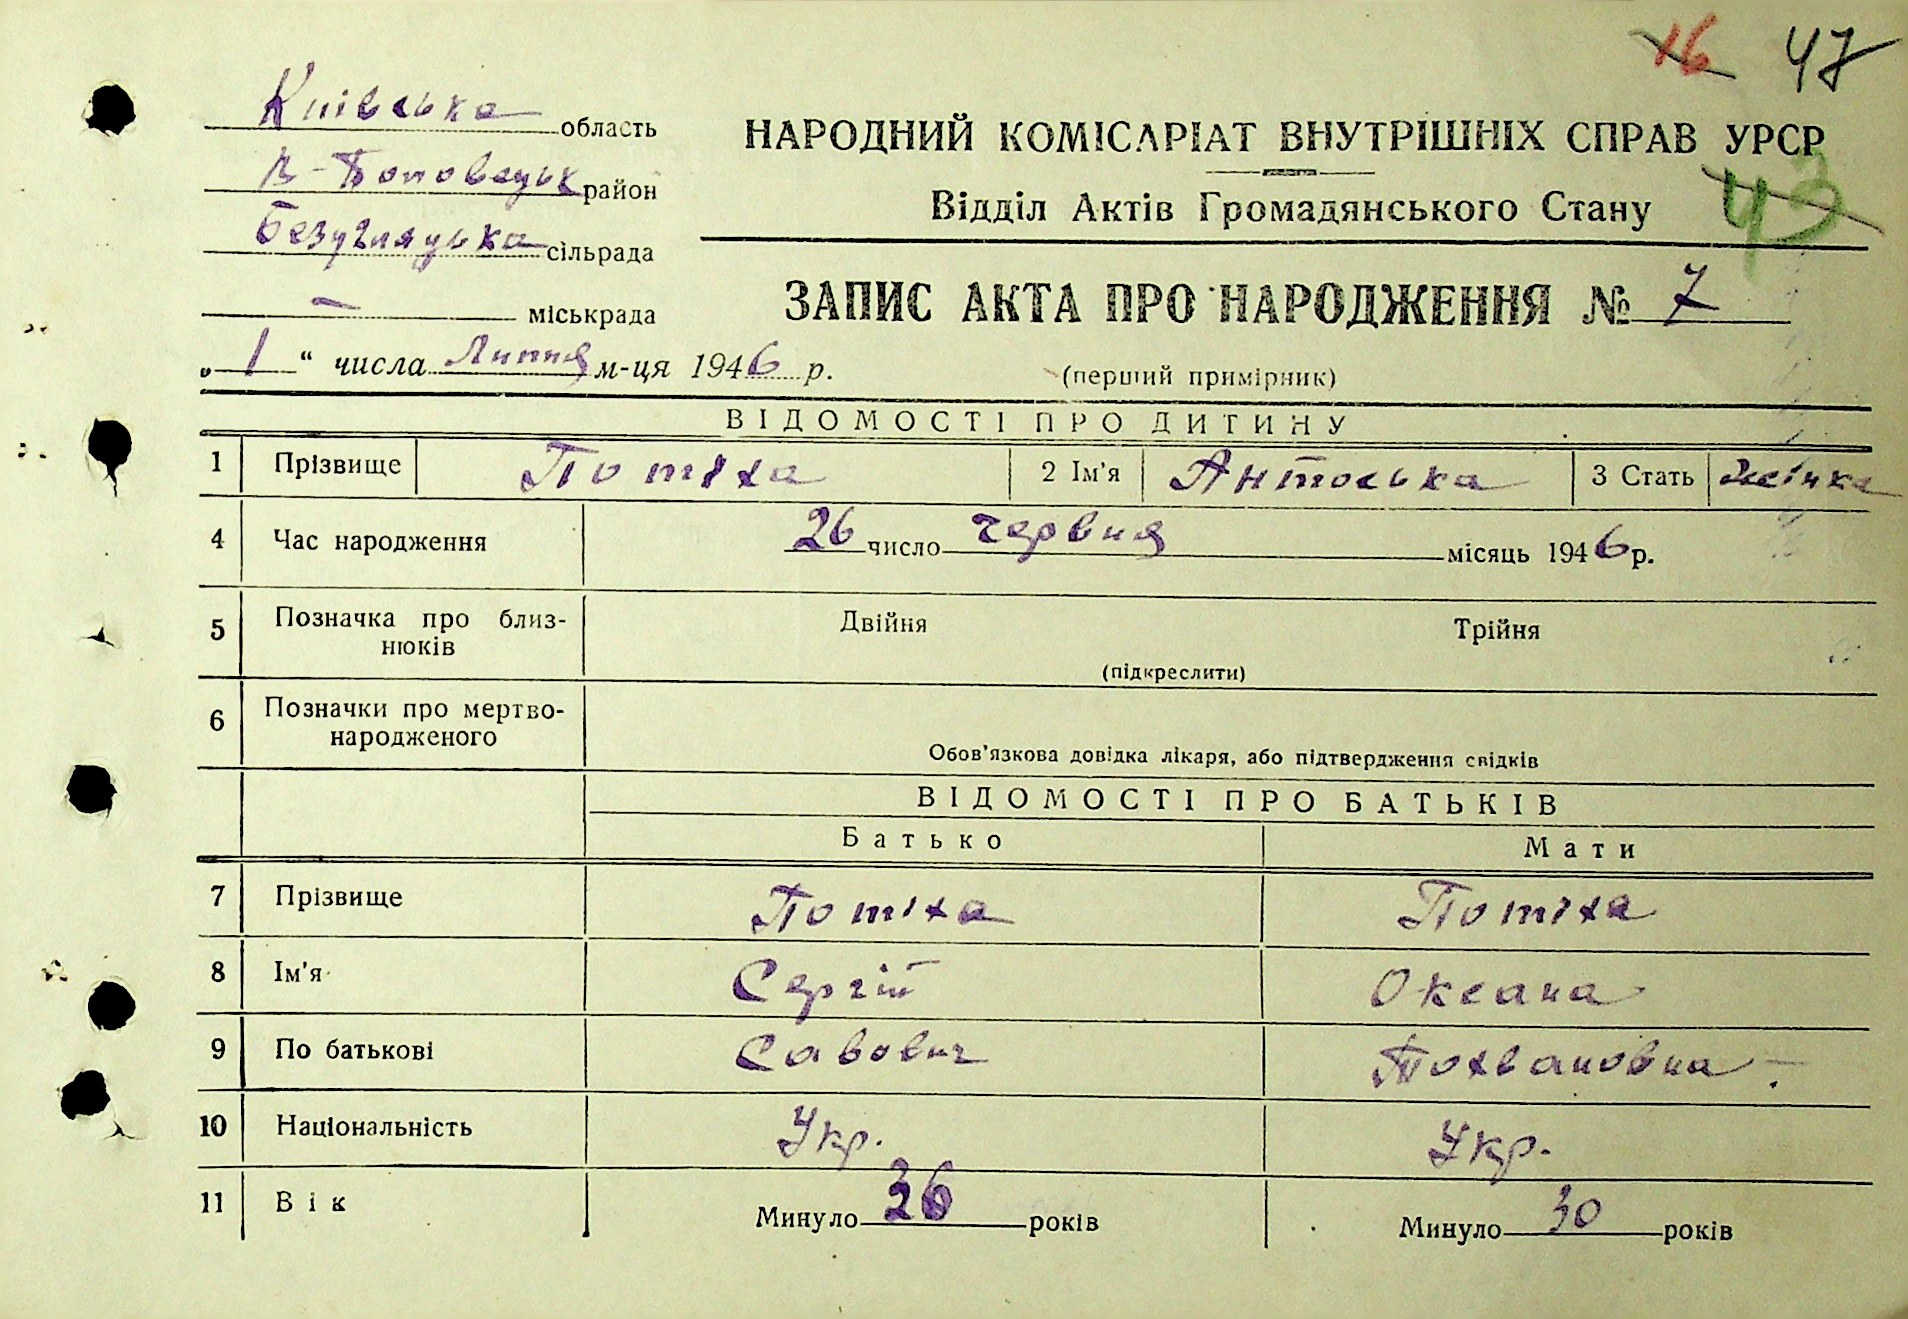 16 47
Київська область
НАРОДНИЙ КОМІСАРІАТ ВНУТРІШНІХ СПРАВ УРСР
район
Відділ Актів Громадянського Стану 43
сільрада
ЗАПИС АКТА ПРО НАРОДЖЕННЯ № 7
— міськрада
„ 1 “ числа Липня м-ця 1946 р. (перший примірник)
ВІДОМОСТІ ПРО ДИТИНУ
1 Прізвище Потіха 2 Ім'я Антоська 3 Стать жінка
4 Час народження 26 число червня місяць 1946 р.
5 Позначка про близ-нюків Двійня Трійня
(підкреслити)
6 Позначки про мертво-народженого
Обов'язкова довідка лікаря, або підтвердження свідків
ВІДОМОСТІ ПРО БАТЬКІВ
Батько Мати
7 Прізвище Потіха Потіха
8 Ім'я Сергій Оксана
9 По батькові Савович Тохвановна
10 Національність Укр. Укр.
11 Вік Минуло 36 років Минуло 30 років